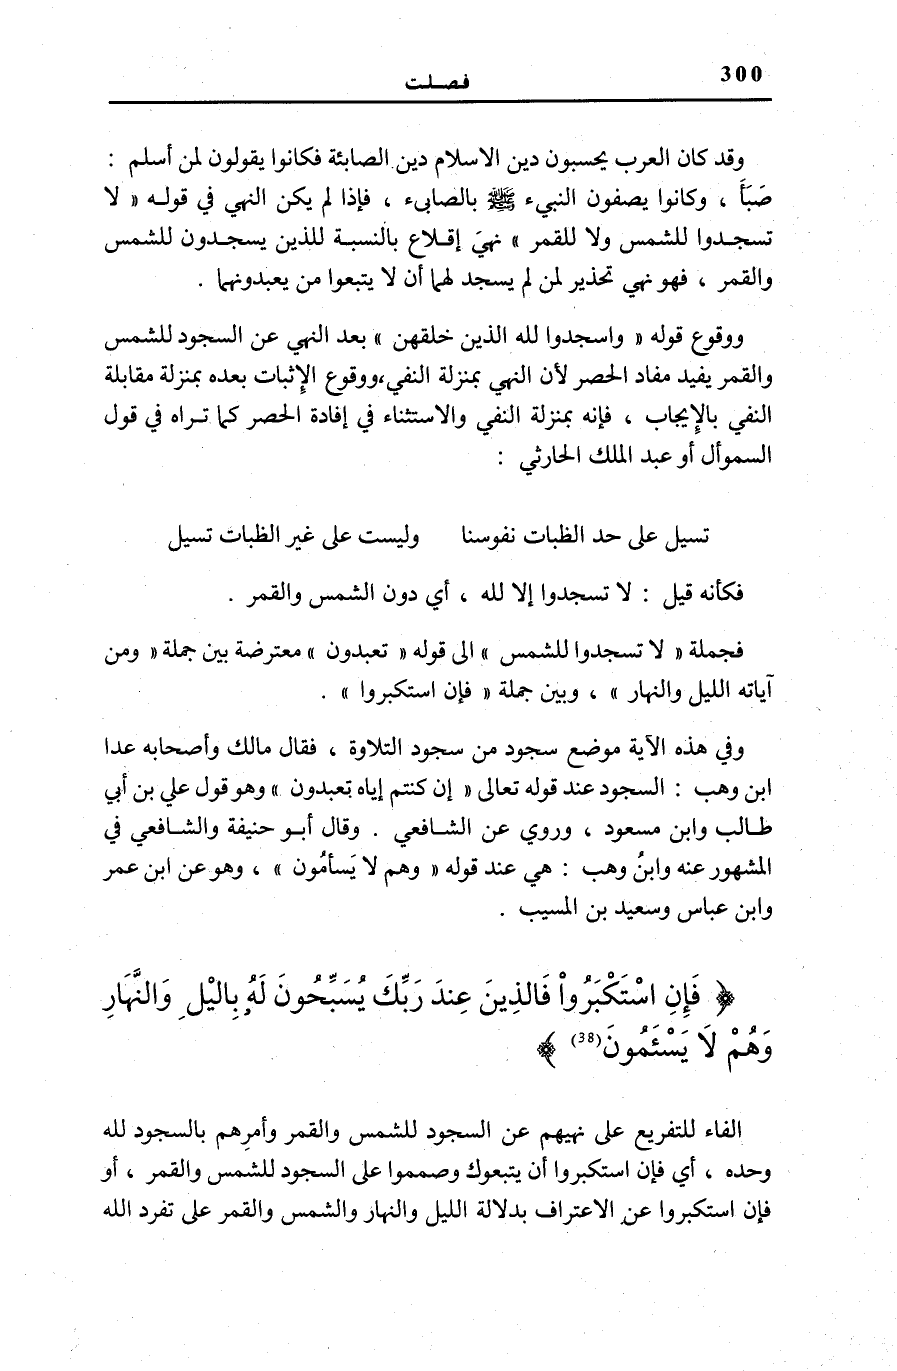 300
فصلت
وقد كان العرب يحسبون دين الاسلام دين الصابئة فكانوا يقولون لمن أسلم :
صَبَأَ ، وكانوا يصفون النبيء ﷺ بالصابىء ، فإذا لم يكن النهي في قوله « لا
تسجدوا للشمس ولا للقمر » نهيَ إقلاع بالنسبة للذين يسجدون للشمس
والقمر ، فهو نهي تحذير لمن لم يسجد لهما أن لا يتبعوا من يعبدونهما .
ووقوع قوله « واسجدوا لله الذين خلقهن » بعد النهي عن السجود للشمس
والقمر يفيد مفاد الحصر لأن النهي بمنزلة النفي،ووقوع الإثبات بعده بمنزلة مقابلة
النفي بالإيجاب ، فإنه بمنزلة النفي والاستثناء في إفادة الحصر كما تراه في قول
السموأل أو عبد الملك الحارثي :
تسيل على حد الظبات نفوسنا وليست على غير الظبات تسيل
فكأنه قيل : لا تسجدوا إلا لله ، أي دون الشمس والقمر .
فجملة « لا تسجدوا للشمس » الى قوله « تعبدون » معترضة بين جملة « ومن
آياته الليل والنهار » ، وبين جملة « فإن استكبروا » .
وفي هذه الآية موضع سجود من سجود التلاوة ، فقال مالك وأصحابه عدا
ابن وهب : السجود عند قوله تعالى « إن كنتم إياه تعبدون » وهو قول علي بن أبي
طالب وابن مسعود ، وروي عن الشافعي . وقال أبو حنيفة والشافعي في
المشهور عنه وابنُ وهب : هي عند قوله « وهم لا يَسأمُون » ، وهو عن ابن عمر
وابن عباس وسعيد بن المسيب .
﴿ فَإِنِ اسْتَكْبَرُواْ فَالذِينَ عِندَ رَبِّكَ يُسَبِّحُونَ لَهُ بِاليْلِ وَالنَّهَارِ
وَهُمْ لَا يَسْـَٔمُونَ(38) ﴾
الفاء للتفريع على نهيهم عن السجود للشمس والقمر وأمرِهم بالسجود لله
وحده ، أي فإن استكبروا أن يتبعوك وصمموا على السجود للشمس والقمر ، أو
فإن استكبروا عن الاعتراف بدلالة الليل والنهار والشمس والقمر على تفرد الله